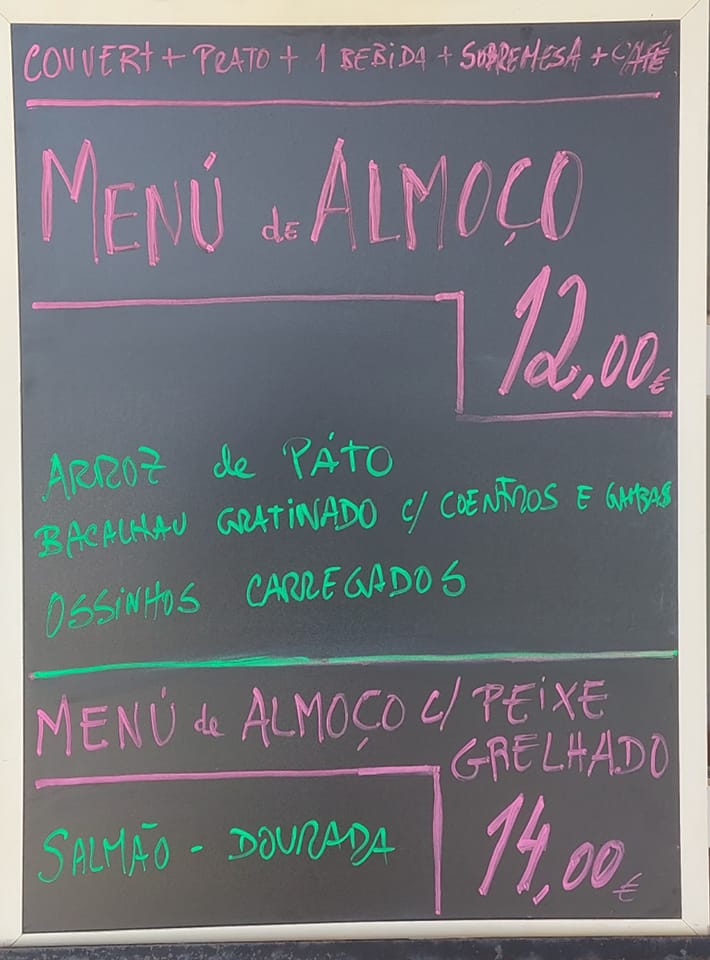 COUVERT + PRATO + 1 BEBIDA + SOBREMESA + CAFÉ
MENÚ de ALMOÇO
12,00€
ARROZ de PÁTO
BACALHAU GRATINADO C/ COENTROS E GAMBAS
OSSINHOS CARREGADOS
MENÚ de ALMOÇO C/ PEIXE
GRELHADO
SALMÃO - DOURADA
14,00€